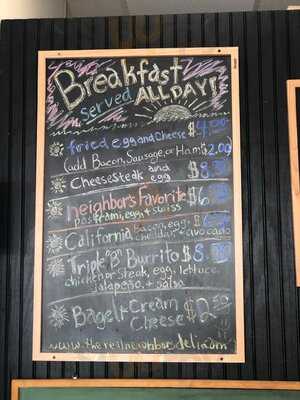 Breakfast
Served ALL DAY!
fried egg and Cheese $4.00
(add Bacon, Sausage, or Ham $2.00
Cheesesteak and egg $8.50
Neighbor's Favorite $6
pastrami, egg, + swiss
California Bacon, egg, $6
cheddar + avocado
Triple B Burrito $8
chicken or steak, egg, lettuce,
jalapeño, + salsa
Bagel + Cream $2.50
Cheese
www.therealneighbordeli.com